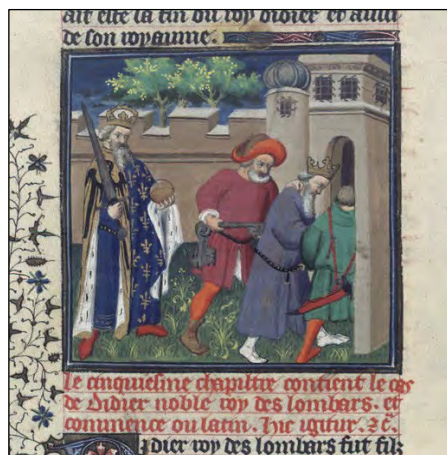 ait este la fin du roy didier et aussi
de son royaume.
le cinquiesme chapiltre contient le cas
de didier noble roy des lombars. et
commence ou latin. Hic igitur. ⁊c̄.
Didier roy des lombars fut filz